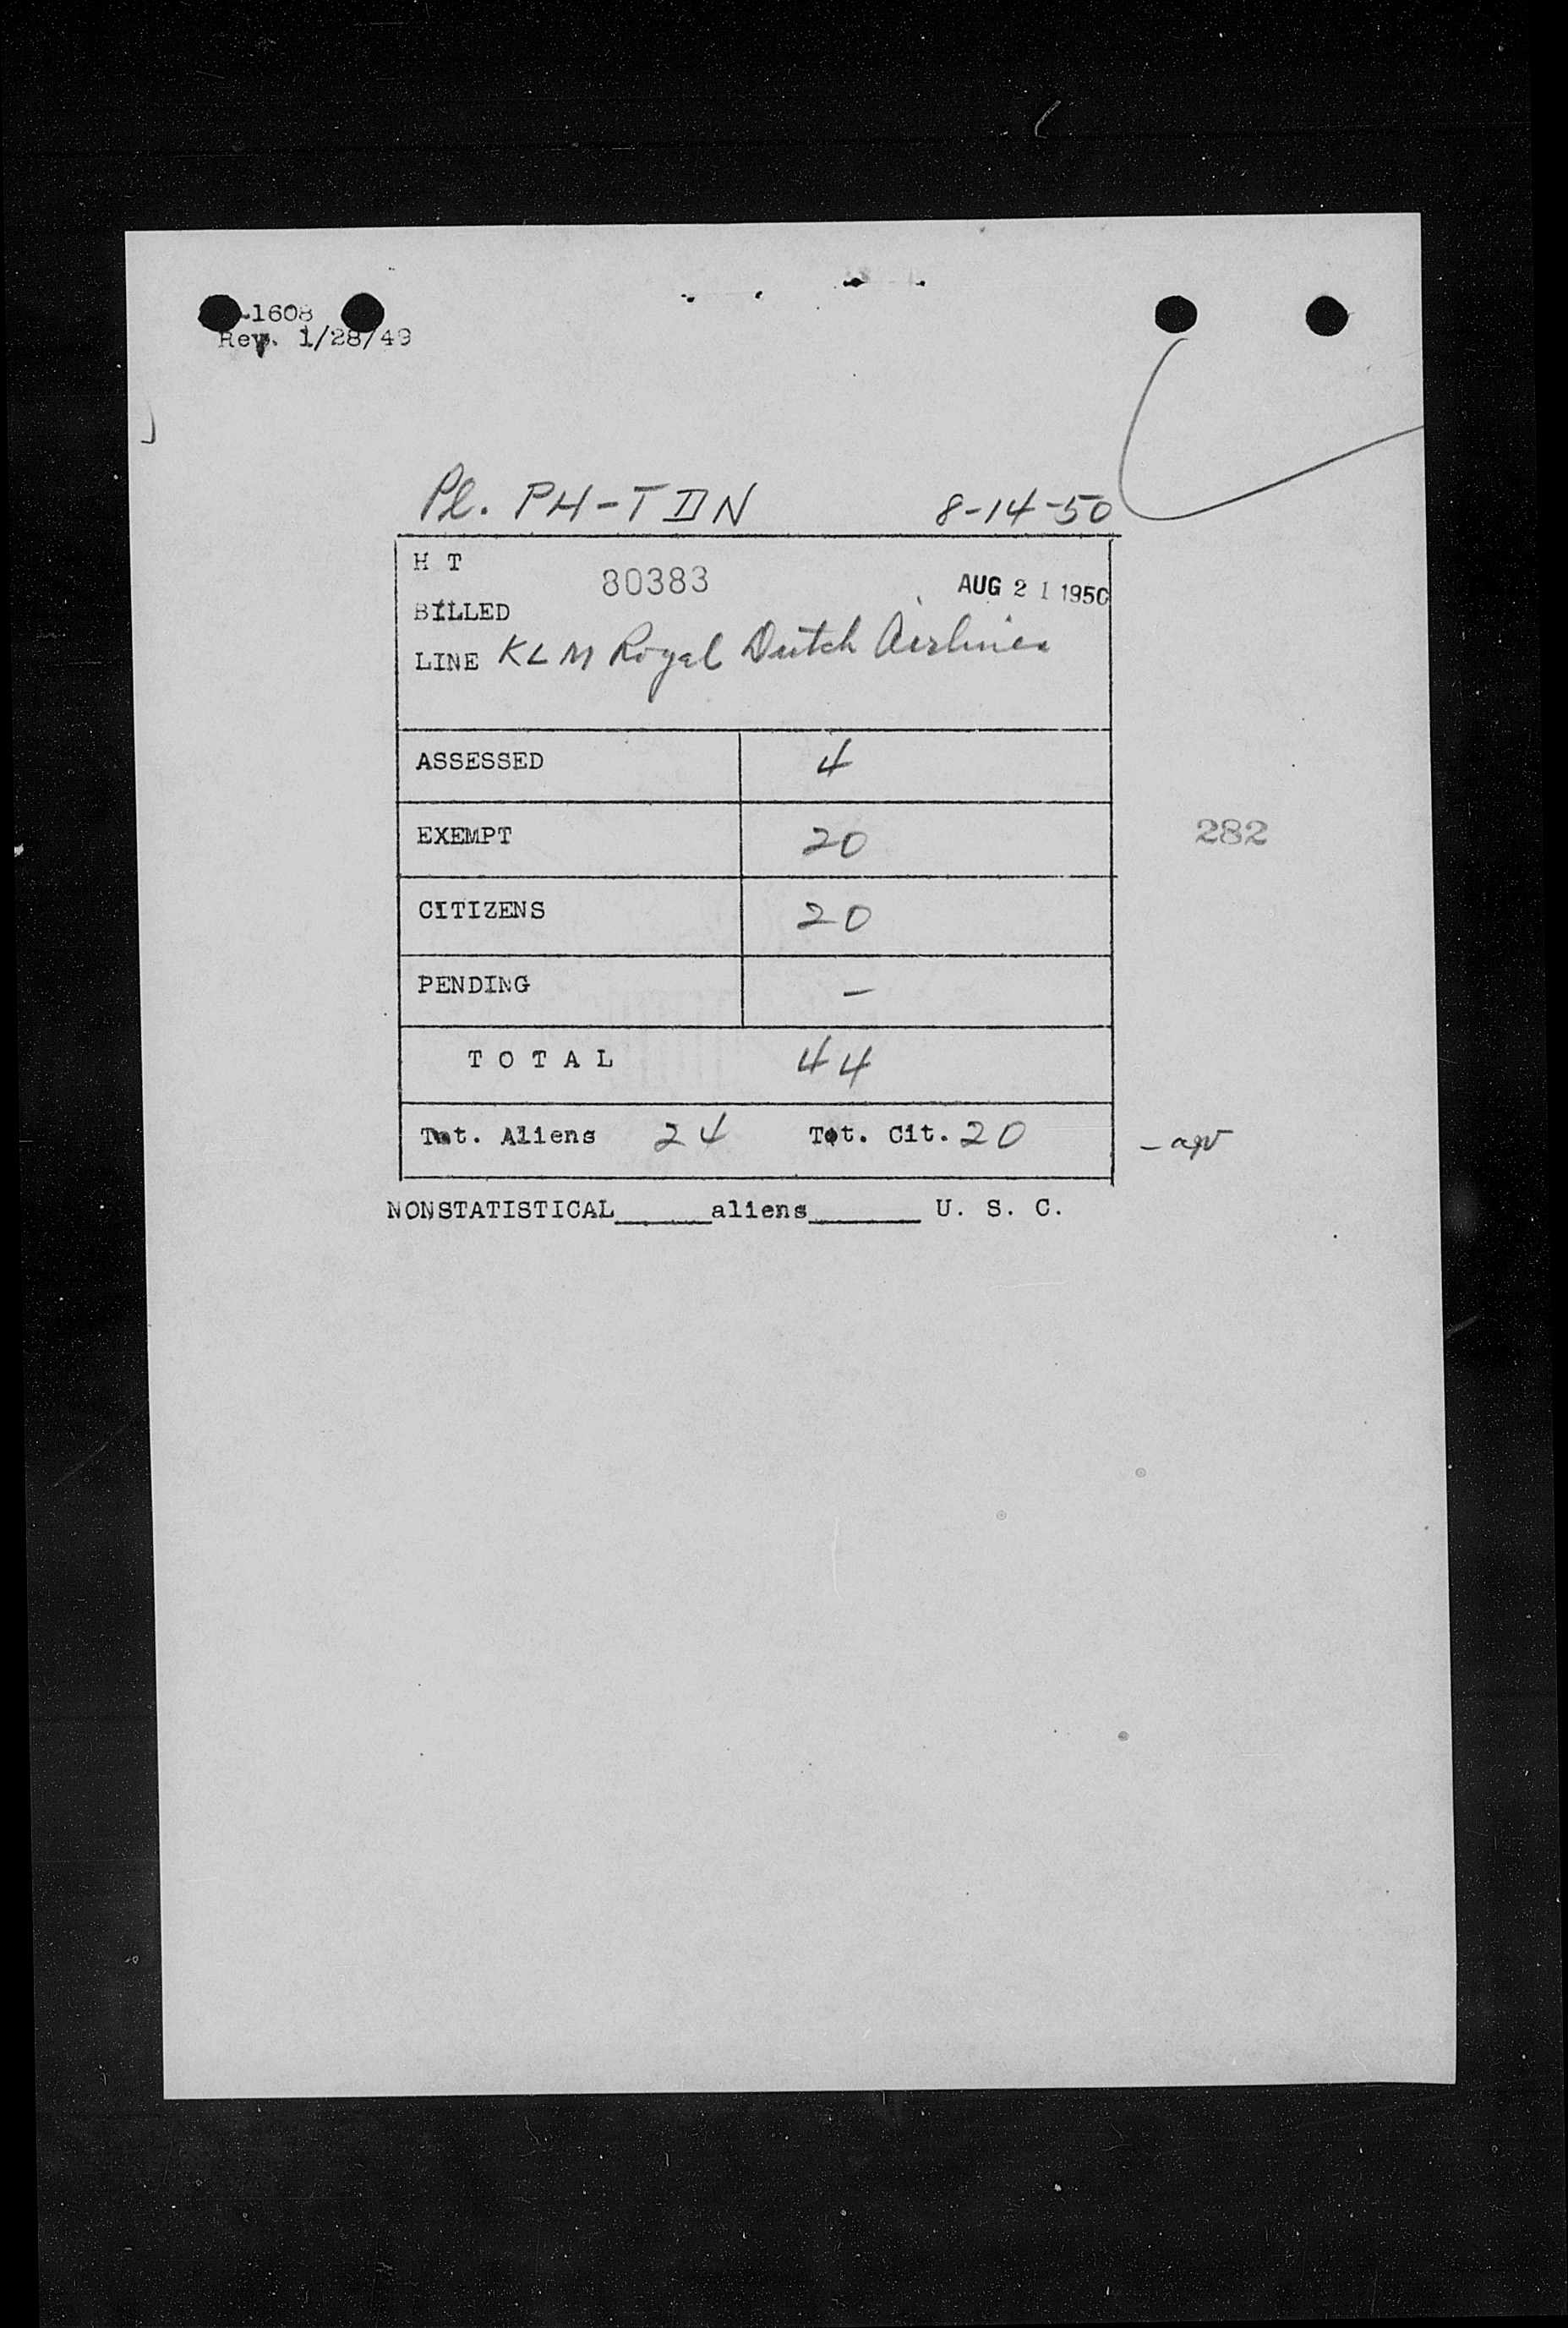 -1608
Rev. 1/28/49
Pl. PH-TDN 8-14-50
H T
80383 AUG 21 1950
BILLED
LINE KLM Royal Dutch Airlines
ASSESSED 4
EXEMPT 20
282
CITIZENS 20
PENDING –
TOTAL 44
Tot. Aliens 24 Tot. Cit. 20
NONSTATISTICAL______aliens_______ U. S. C.